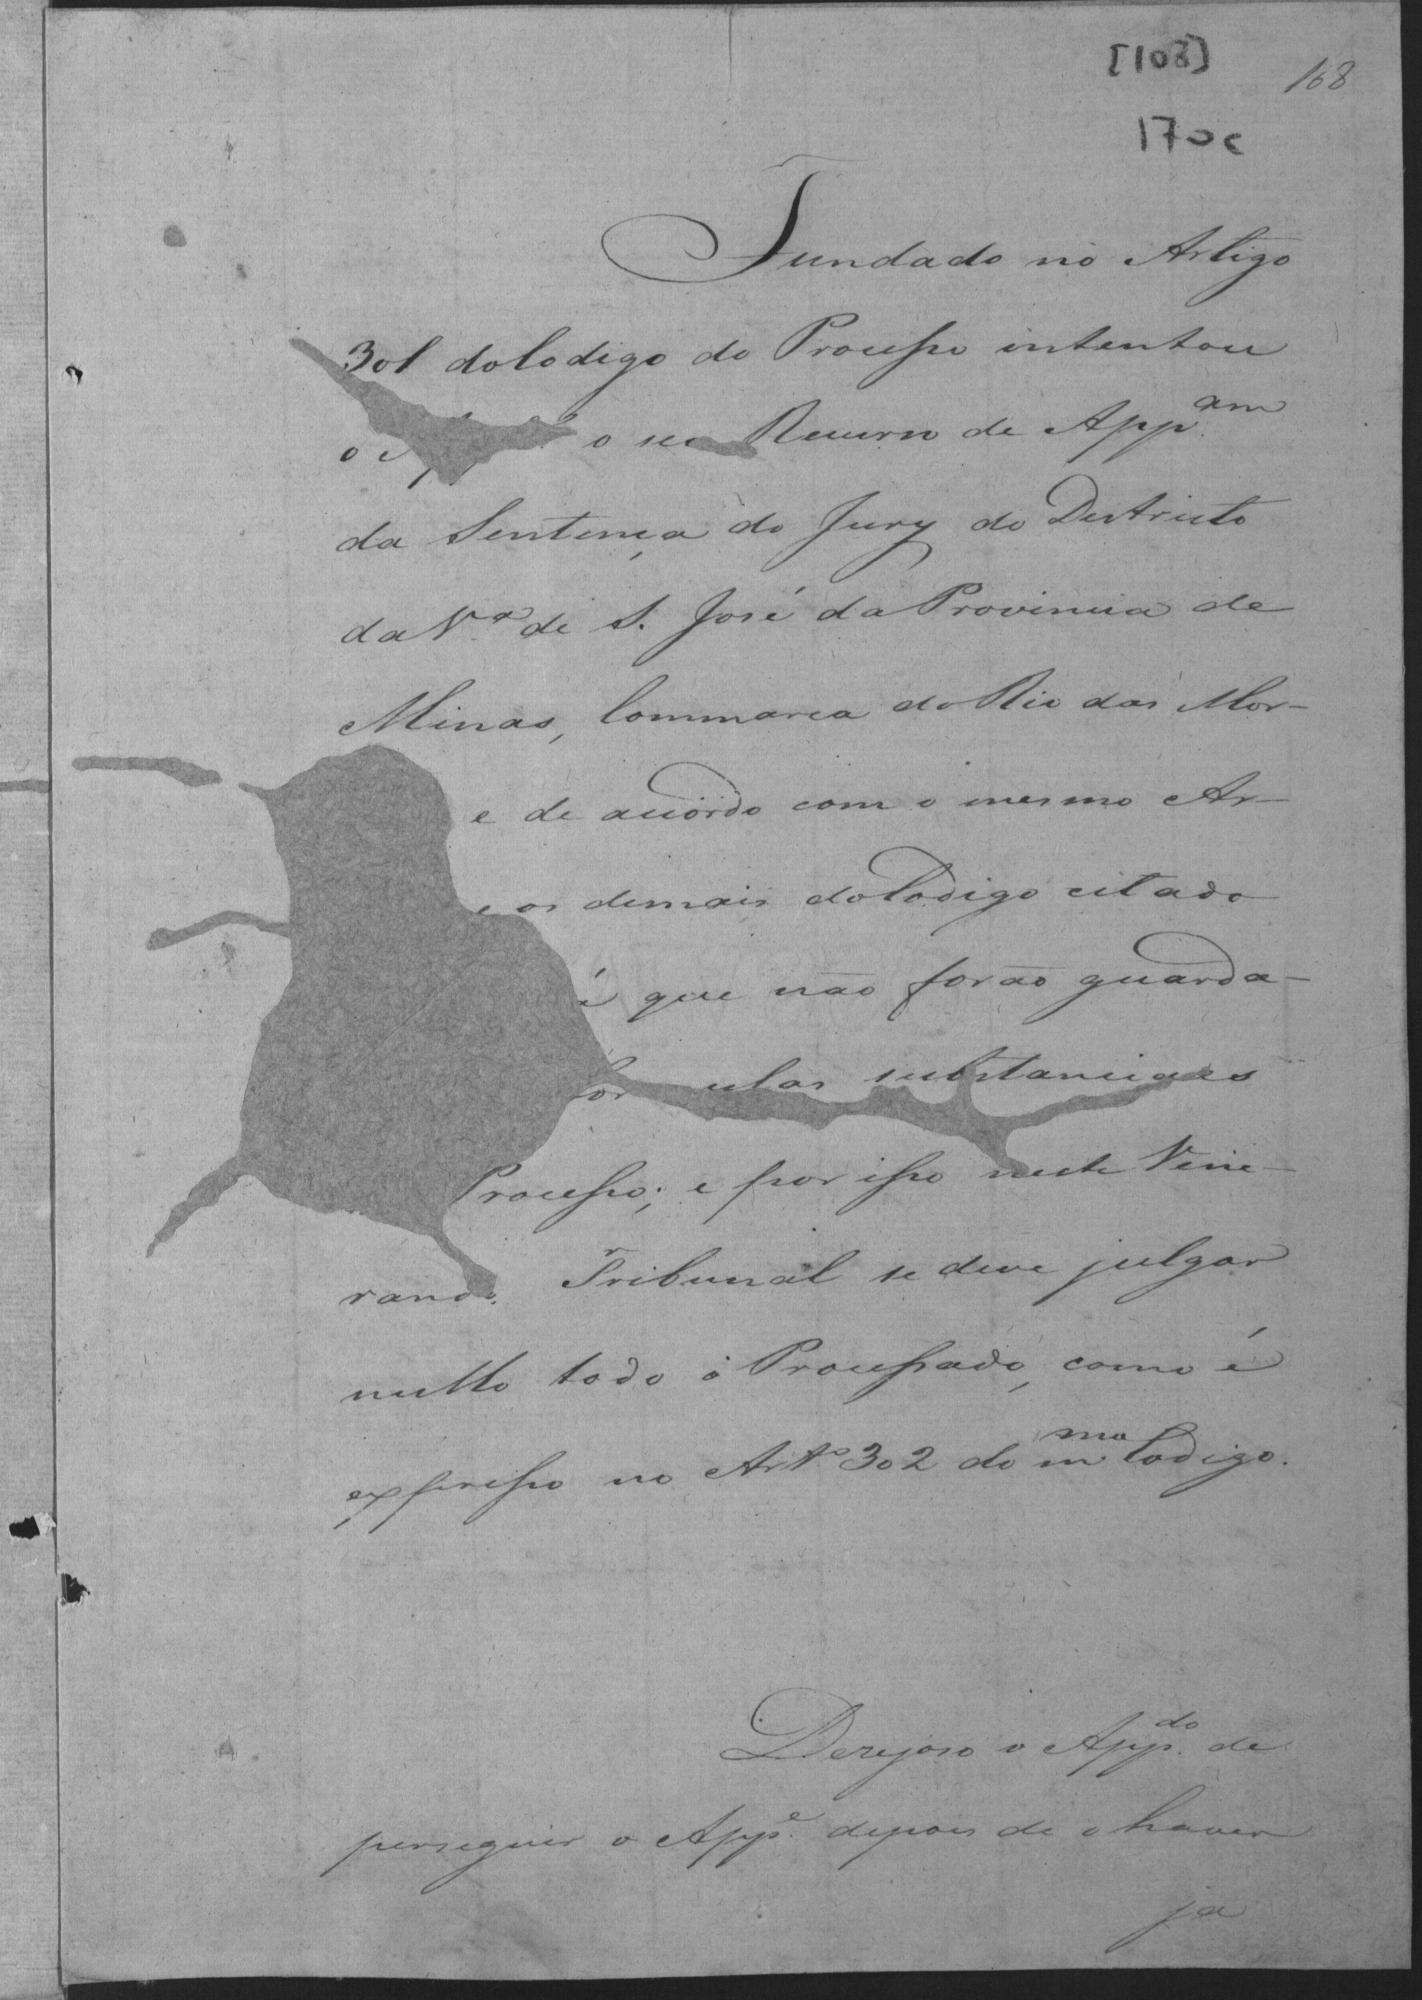 [108]
168
170c
Fundado no Artigo
301 do Codigo do Processo intentou
o seo Recurso de App.am
da Sentença do Jury do Districto
da V.a de S. José da Provincia de
Minas, Commarca do Rio das Mor-
e de acôrdo com o mesmo Ar-
e os demais do Codigo citado
é que não forão guarda-
for ulas substanciaes
Processo; e por isso neste Vene-
rando Tribunal se deve julgar
nullo todo o Processado, como é
expresso no Art.o 302 do m.mo Codigo.
Dezejoso o App.do de
perseguir o App.e depois de o haver
ja